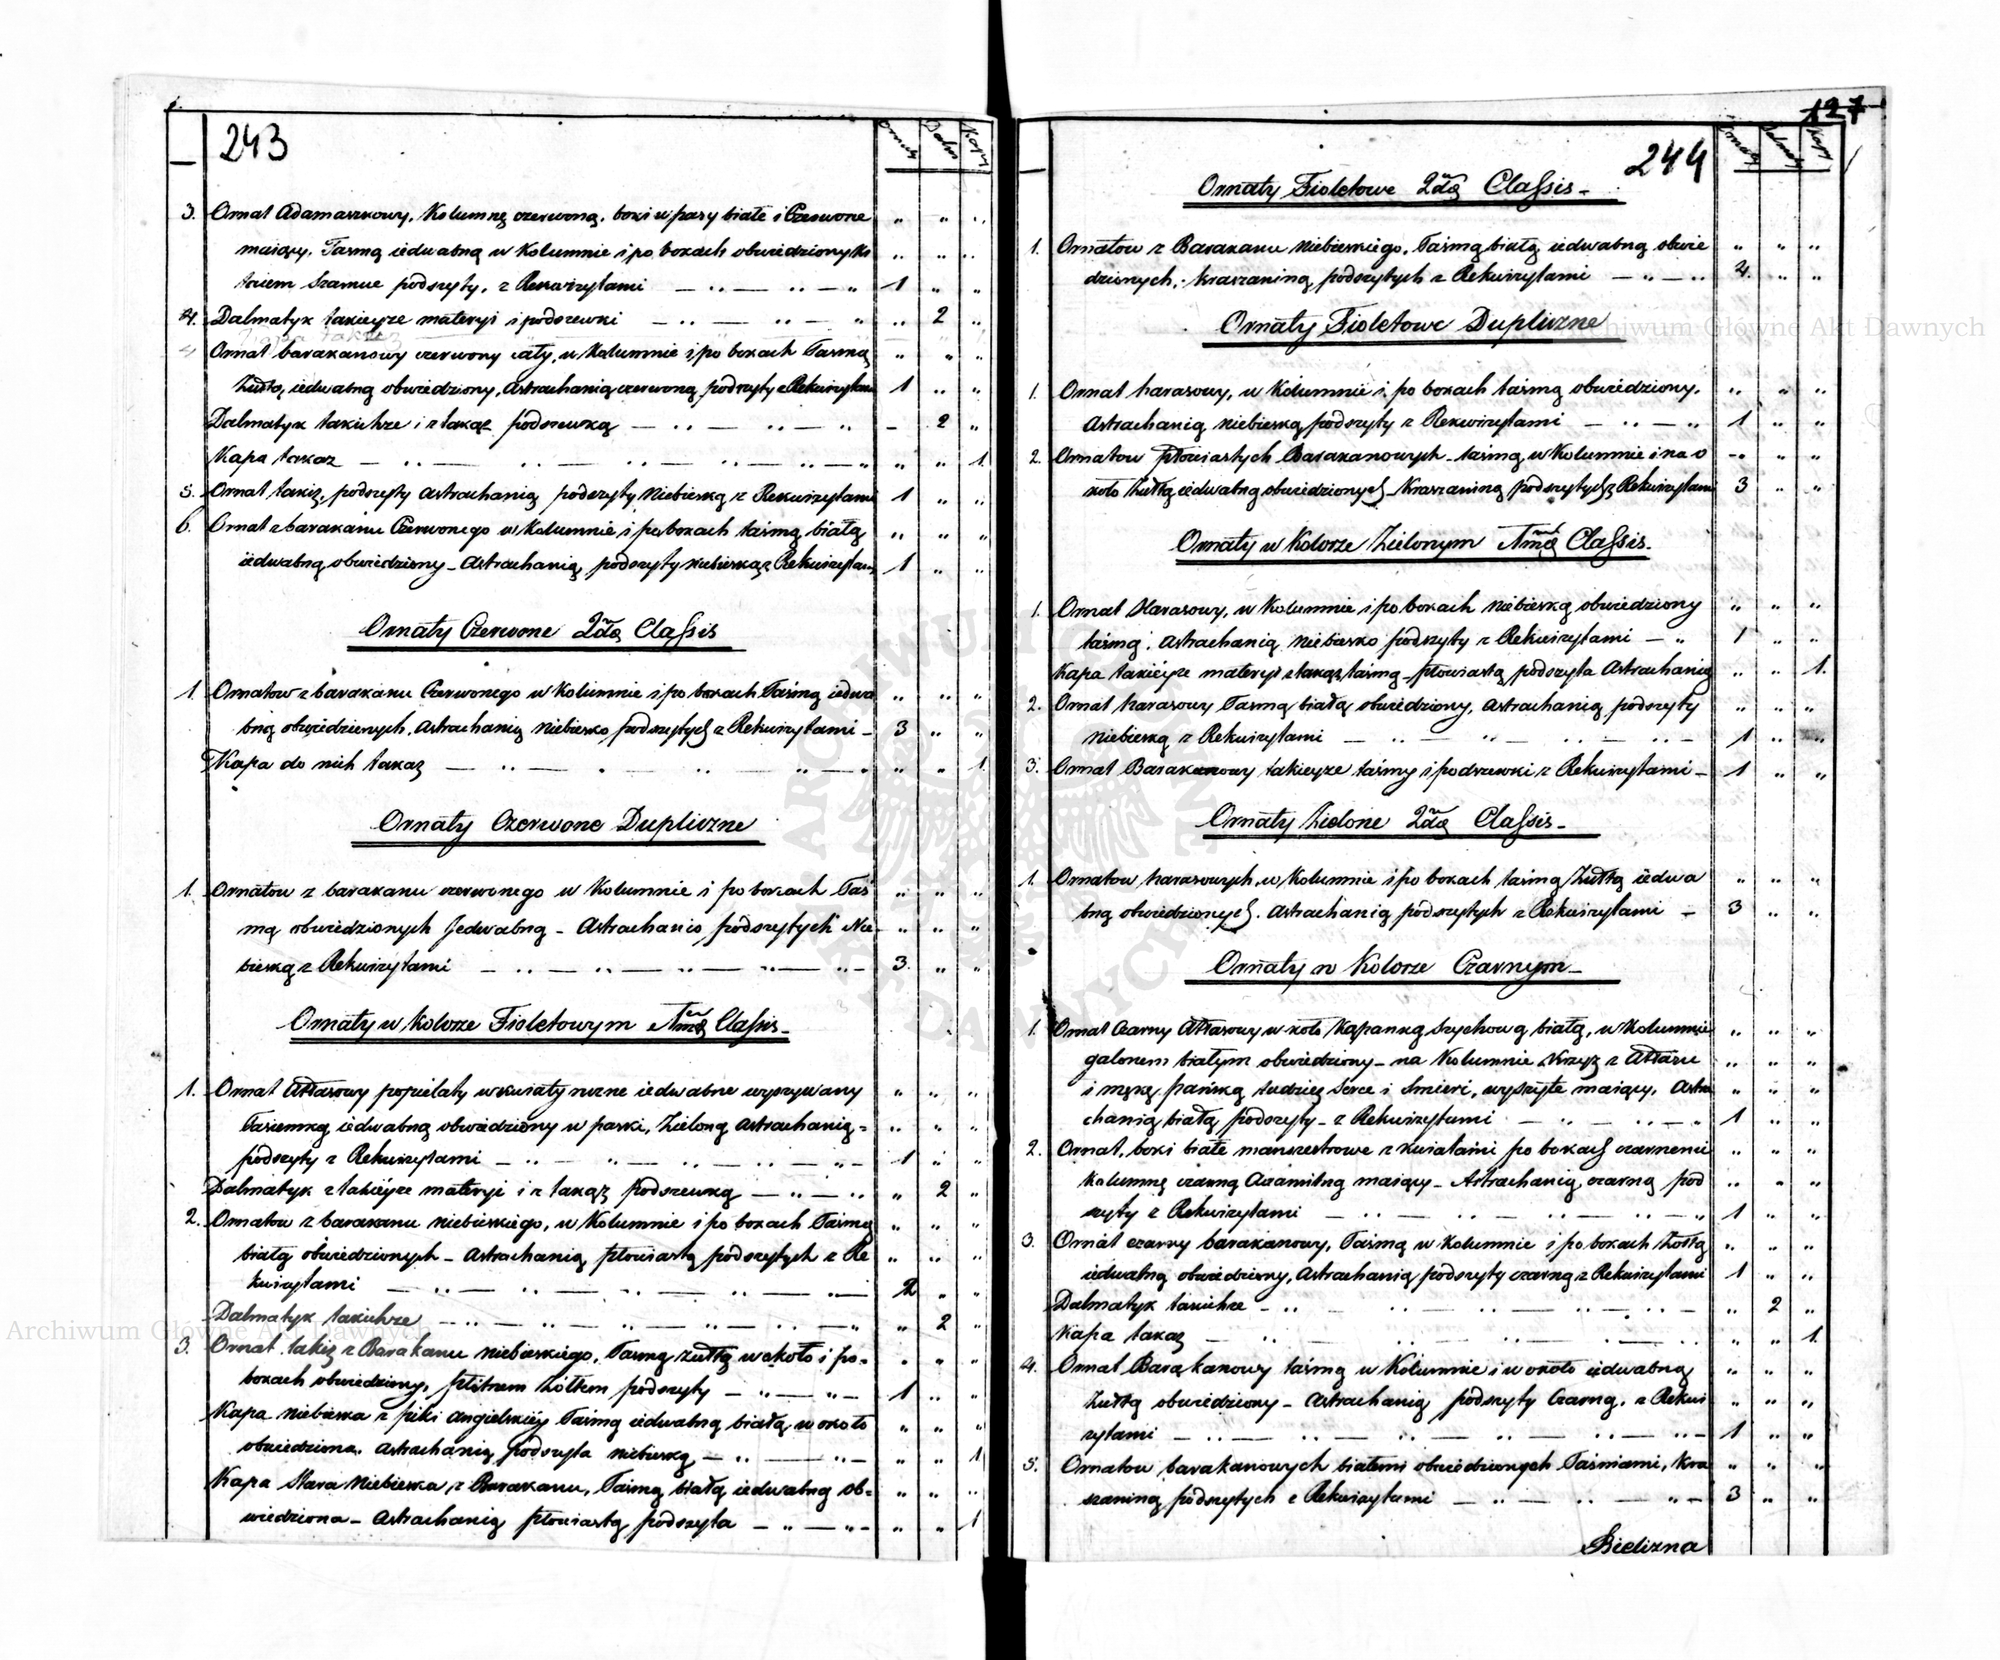 243
Ornaty Dalm Kapy
3. Ornat Adamaszkowy, Kolumnę czerwoną, boki w pasy białe i Czerwone
maiący, Taśmą iedwabną w Kolumnie i po bokach obwiedziony
podszyty, z Rekwizytami 1
4. Dalmatyk takieyże materyi i podszewki 2
Ornat barakanowy czerwony cały, w Kolumnie i po bokach Taśmą
żółtą iedwabną obwiedziony, Astrachanią czerwoną podszyty z Rekwizytami 1
Dalmatyk takichże i z takąż podszewką 2
Kapa takaż 1
5. Ornat takiż, podszyty Astrachanią podszyty Niebieską z Rekwizytami 1
6. Ornat z barakanu Czerwonego w Kolumnie i po bokach taśmą białą
iedwabną obwiedziony - Astrachanią podszyty niebieską z Rekwizytami 1
Ornaty Czerwone 2dæ Classis
1. Ornatow z barakanu Czerwonego w Kolumnie i po bokach Taśmą iedwa
bną obwiedzionych, Astrachanią Niebiesko podszytych z Rekwizytami - 3
Kapa do nich takaż 1
Ornaty Czerwone Dupliczne
1. Ornatow z barakanu czerwonego w Kolumnie i po bokach Taś
mą obwiedzionych Jedwabną - Astrachanio podszytych Nie
bieską z Rekwizytami 3
Ornaty w Kolorze Fioletowym 1mæ Classis -
1. Ornat Atłasowy popielaty w kwiaty rozne iedwabne wyszywany
Tasiemką iedwabną obwiedziony w paski, Zieloną Astrachanią =
podszyty z Rekwizytami 1
Dalmatyk z takieyże materyi i z takąż podszewką 2
2. Ornatow z barakanu niebieskiego, w Kolumnie i po bokach Taśmą
białą obwiedzionych - Astrachanią płowiastą podszytych z Re
kwizytami 2
Dalmatyk takichże 2
3. Ornat takiż z Barakanu niebieskiego, Taśmą żułtą wokoło i po =
bokach obwiedziony, płótnem żółtem podszyty 1
Kapa niebieska z piki angielskiey Taśmą iedwabną białą wokoło
obwiedziona, Astrachanią podszyta niebieską 1
Kapa Stara Niebieska z Barakanu, Taśmą białą iedwabną ob =
wiedziona - Astrachanią płowiastą podszyta 1
127
244
Ornaty Dalmaty Kapy
Ornaty Fioletowe 2dæ Classis -
1. Ornatow z Barakanu Niebieskiego, Taśmą białą iedwabną obwie
dzionych, Kraszaniną podszytych z Rekwizytami 4.
Ornaty Fioletowe Dupliczne
1. Ornat harasowy, w Kolumnie i po bokach taśmą obwiedziony,
Astrachanią niebieską podszyty z Rekwizytami 1
2. Ornatow płowiastych Barakanowych - taśmą w Kolumnie i na o
koło żułtą iedwabną obwiedzionych - Kraszaniną podszytych z Rekwizytami 3
Ornaty w Kolorze Zielonym 1mæ Classis -
1. Ornat Harasowy, w Kolumnie i po bokach Niebieską obwiedziony
taśmą. Astrachanią niebiesko podszyty z Rekwizytami 1
Kapa takieyże materyi z takąż taśmą - płowiastą podszyta Astrachanią 1.
2. Ornat harasowy Taśmą białą obwiedziony, Astrachanią podszyty
niebieską z Rekwizytami 1
3. Ornat Barakanowy takieyże taśmy i podszewki z Rekwizytami - 1
Ornaty Zielone 2dæ Classis -
1. Ornatow harasowych, w Kolumnie i po bokach taśmą Żułtą iedwa
bną obwiedzionych. Astrachanią podszytych z Rekwizytami - 3
Ornaty w Kolorze Czarnym -
1. Ornat Czarny Atłasowy w koło Kapanką Szychową białą, w Kolumnie
galonem białym obwiedziony - na Kolumnie Krzyż z Atłasu
i męką pańską tudzież Serce i Smierć, wyszyte maiący, Astra
chanią białą podszyty - z Rekwizytami 1
2. Ornat, boki białe manszestrowe z kwiatami po bokach czarnemi
Kolumnę czarną Axamitną maiący - Astrachanią czarną pod
szyty z Rekwizytami 1
3. Ornat czarny barakanowy, Taśmą w Kolumnie i po bokach Żółtą
iedwabną obwiedziony, Astrachanią podszyty czarną z Rekwizytami 1
Dalmatyk takichże 2
Kapa takaż 1.
4. Ornat Barakanowy taśmą w Kolumnie i w około iedwabną
Żułtą obwiedziony - Astrachanią podszyty Czarną, z Rekwi
zytami 1
5. Ornatow barakanowych białemi obwiedzionych Taśmami, Kra
szaniną podszytych z Rekwizytami 3
Bielizna
Archiwum Główne Akt Dawnych
Archiwum Główne Akt Dawnych